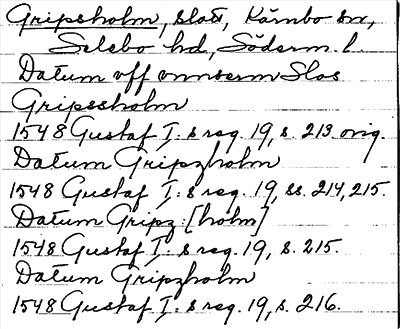 Gripsholm, slott, Kärnbo sn,
Selebo hd, Söderm. l.
Datum vff vnnserm Slos
Gripssholm
1548 Gustaf I: s reg. 19, s. 213 orig.
Datum Gripzholm
1548 Gustaf I: s reg. 19, ss. 214, 215.
Datum Gripz: [holm]
1548 Gustaf I: s reg. 19, s. 215.
Datum Gripzholm
1548 Gustaf I: s reg. 19, s. 216.